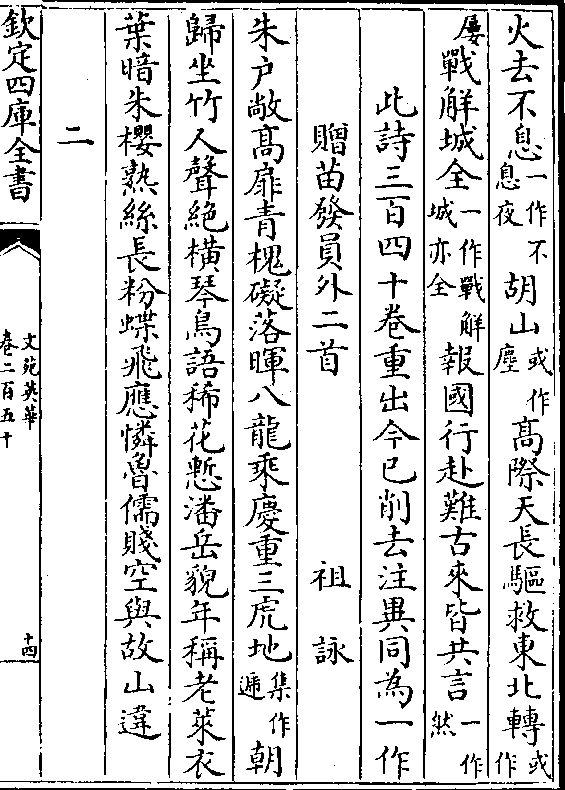 火去不息一作不息夜胡山或作塵高際天長驅救東北轉或作
屢戰解城全一作戰解城亦全報國行赴難古來皆共言一作然
此詩三百四十卷重出今已削去注異同為一作
贈苗發員外二首　祖詠
朱戶敞高扉青槐礙落暉八龍乘慶重三虎地集作遞朝
歸坐竹人聲絶橫琴鳥語稀花慙潘岳貌年稱老萊衣
葉暗朱櫻熟絲長粉蝶飛應憐魯儒賤空與故山違
二
欽定四庫全書
文苑英華
卷二百五十
十四